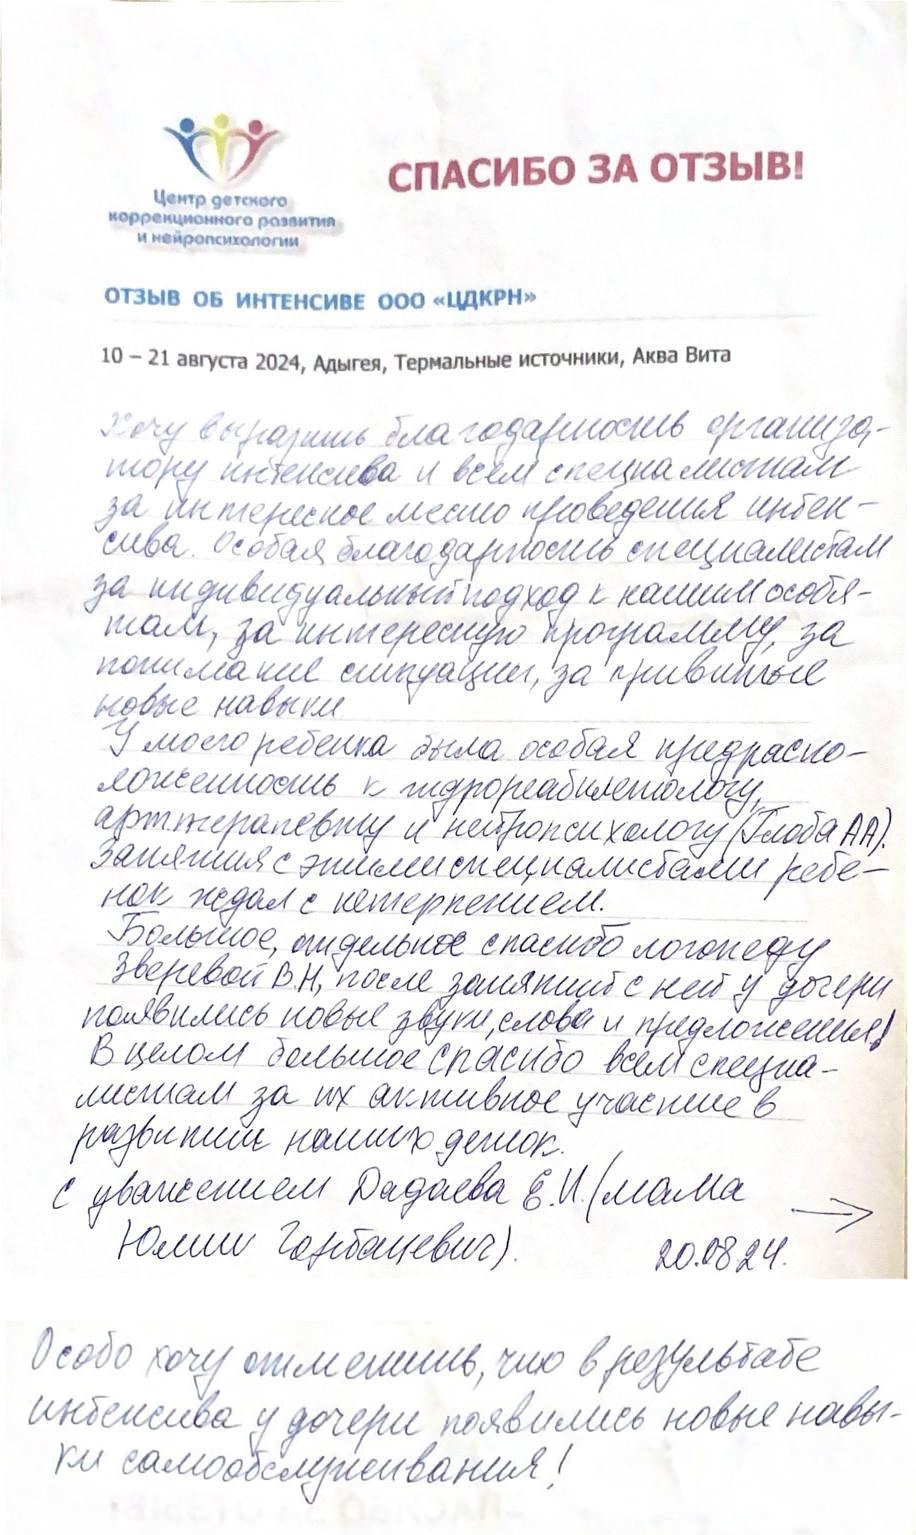 Центр детского
коррекционного развития
и нейропсихологии
СПАСИБО ЗА ОТЗЫВ!
ОТЗЫВ ОБ ИНТЕНСИВЕ ООО «ЦДКРН»
10 – 21 августа 2024, Адыгея, Термальные источники, Аква Вита
Хочу выразить благодарность организа-
тору интенсива и всем специалистам
за интересное место проведения интен-
сива. Особая благодарность специалистам
за индивидуальный подход к нашим особя-
там, за интересную программу, за
понимание ситуации, за привитые
новые навыки.
У моего ребенка была особая предраспо-
ложенность к гидрореабилетологу,
арттерапевту и нейропсихологу (Глоба АА).
Занятия с этими специалистами ребе-
нок ждал с нетерпением.
Большое, отдельное спасибо логопеду
Зверевой В.Н, после занятий с ней у дочери
появились новые звуки, слова и предложения!
В целом большое спасибо всем специа-
листам за их активное участие в
развитии наших деток.
С уважением Дадаева Е.И. (мама
Юлии Горбацевич).
20.08 24.
Особо хочу отметить, что в результате
интенсива у дочери появились новые навы-
ки самообслуживания!